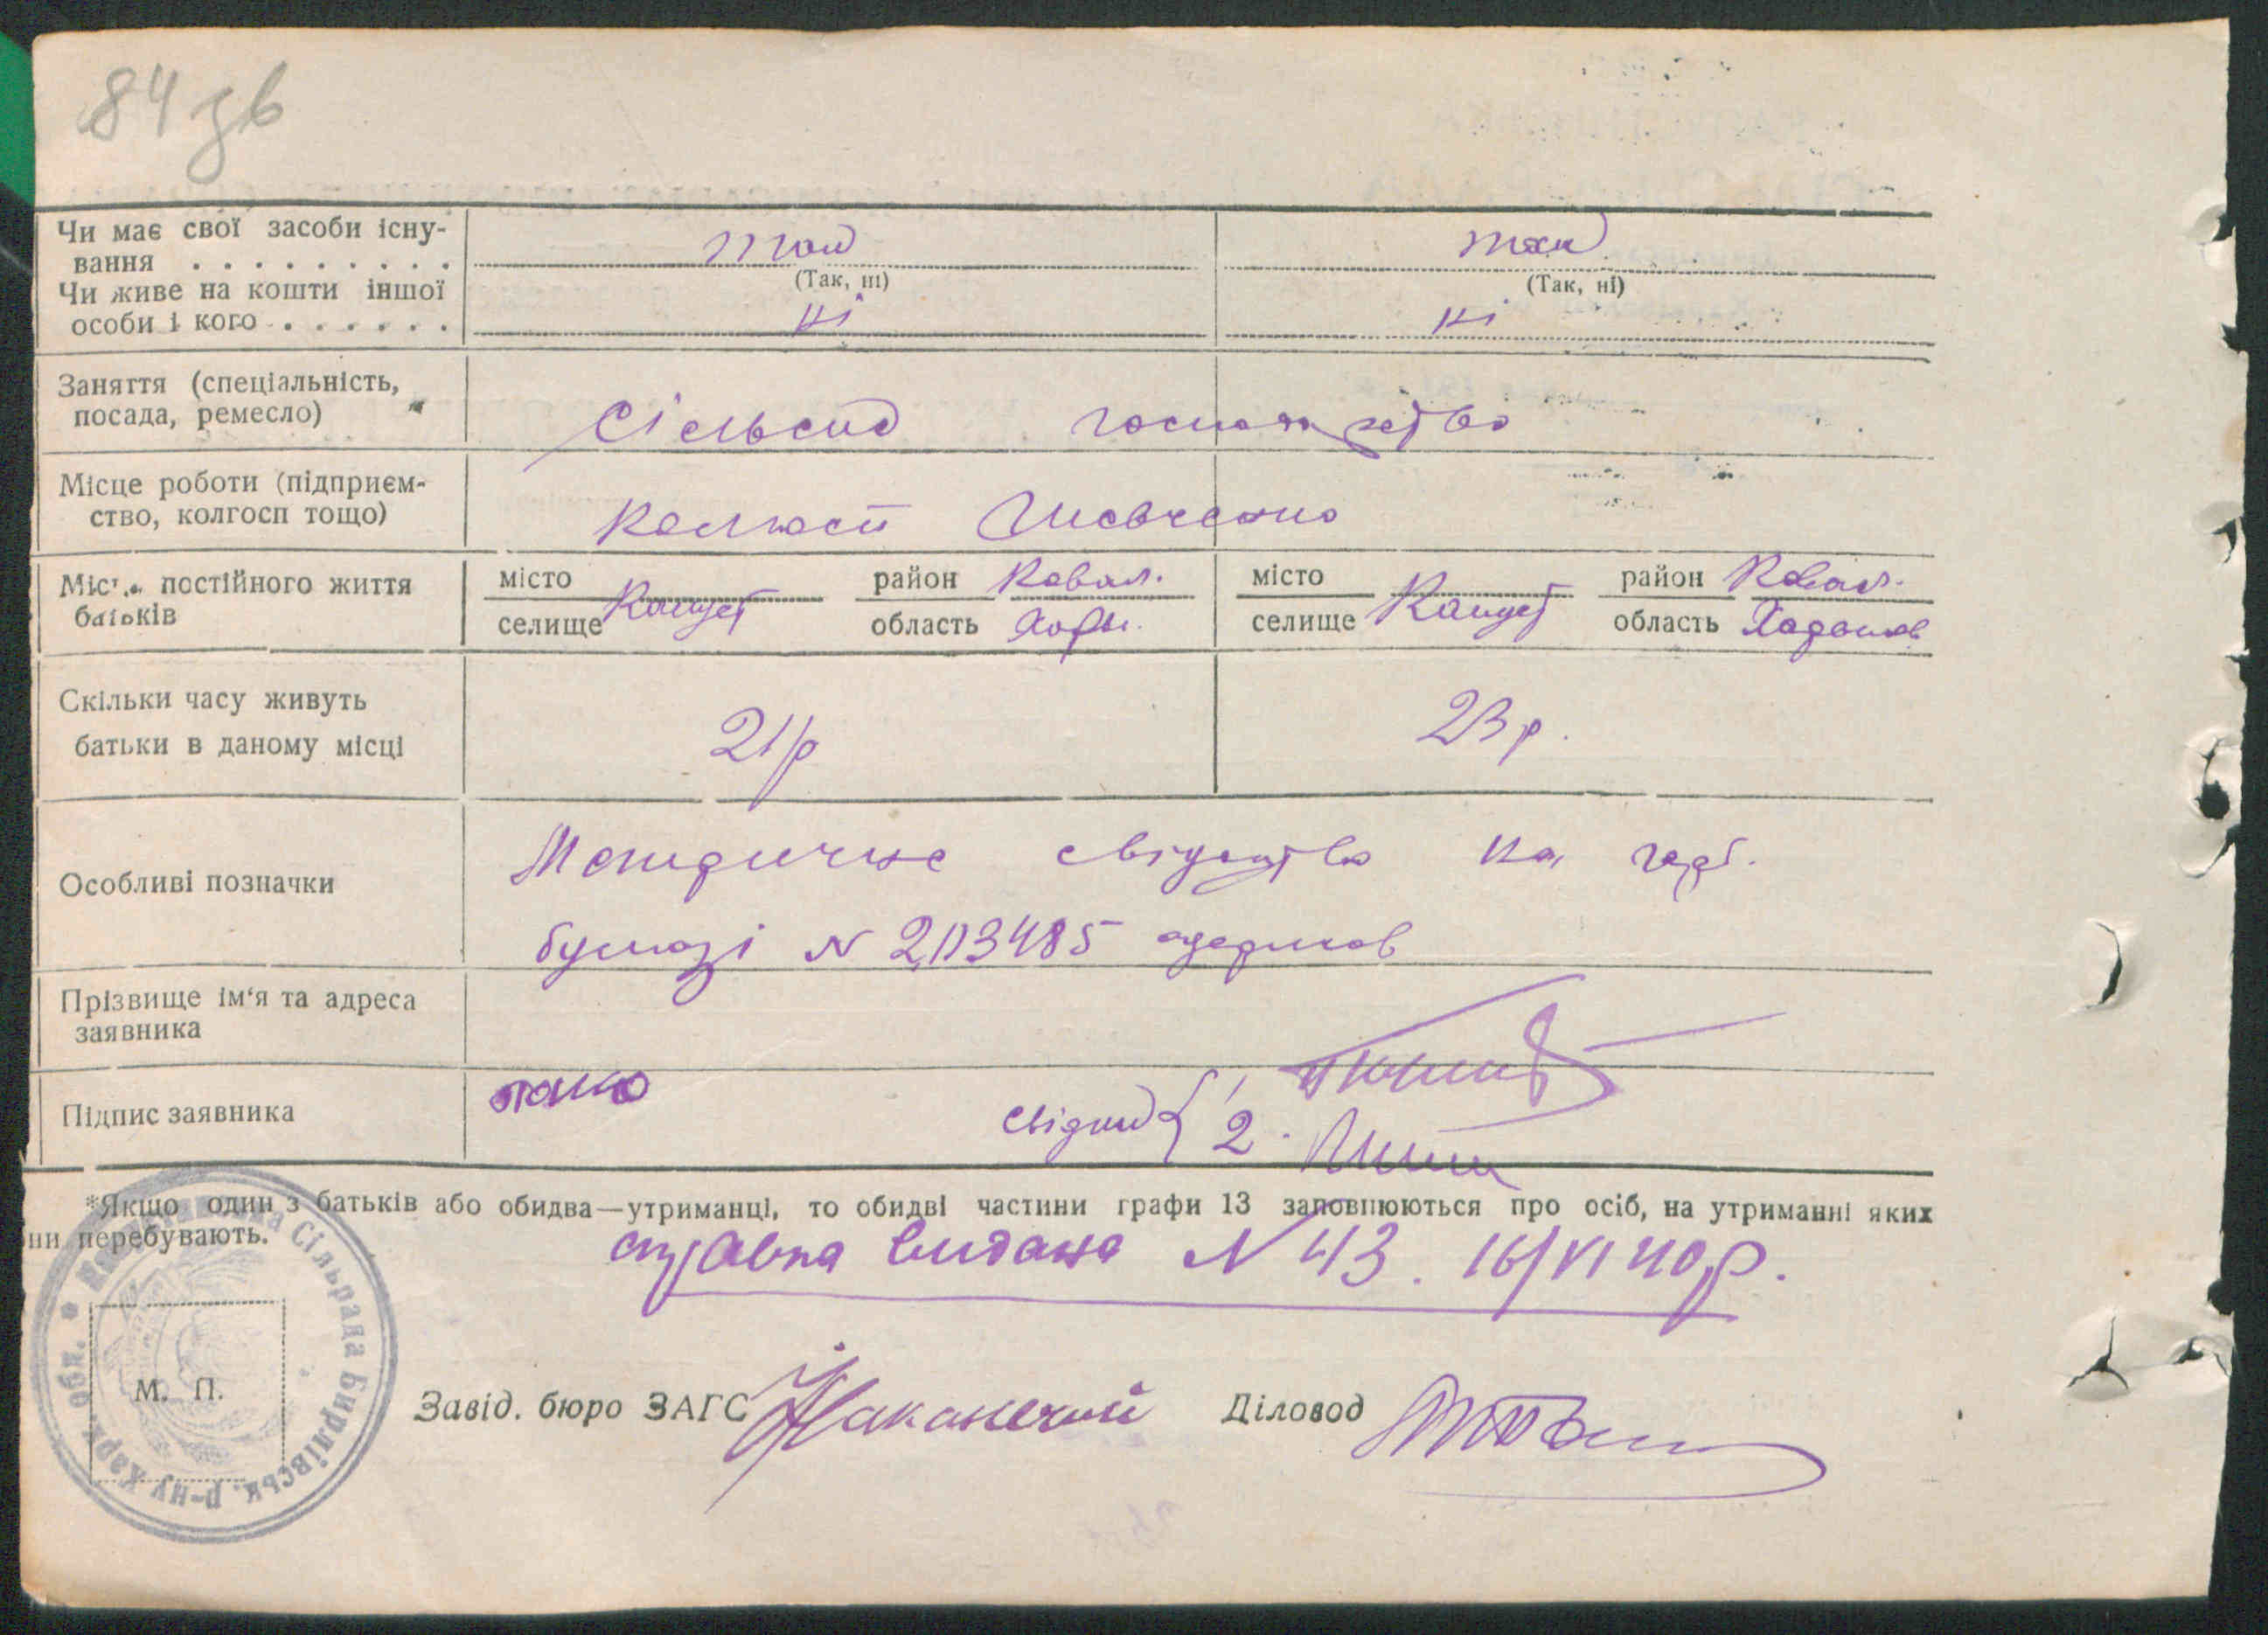 84 зв
Чи має свої засоби існу-
вання . . . . . . . . . . так так
(Так, ні) (Так, ні)
Чи живе на кошти іншої
особи і кого . . . . . . ні ні
Заняття (спеціальність,
посада, ремесло) Сільське господарство
Місце роботи (підприєм-
ство, колгосп тощо) Колгосп Шевченко
Місце постійного життя місто район Ковал. місто район Ковал.
батьків селище область Харк. селище область Харьков
Скільки часу живуть 21р 23 р.
батьки в даному місці
Особливі позначки Метричне свідоцтво на герб.
бумазі N 2113485 одержав
Прізвище ім‘я та адреса
заявника
Підпис заявника свідки { 1
2.
*Якщо один з батьків або обидва—утриманці, то обидві частини графи 13 заповнюються про осіб, на утриманні яких
ни перебувають.
справка видана N 43. 16/VI 40р.
Сільрада Бирлівськ. р-ну Харк. обл.
М. П.
Завід. бюро ЗАГС Діловод